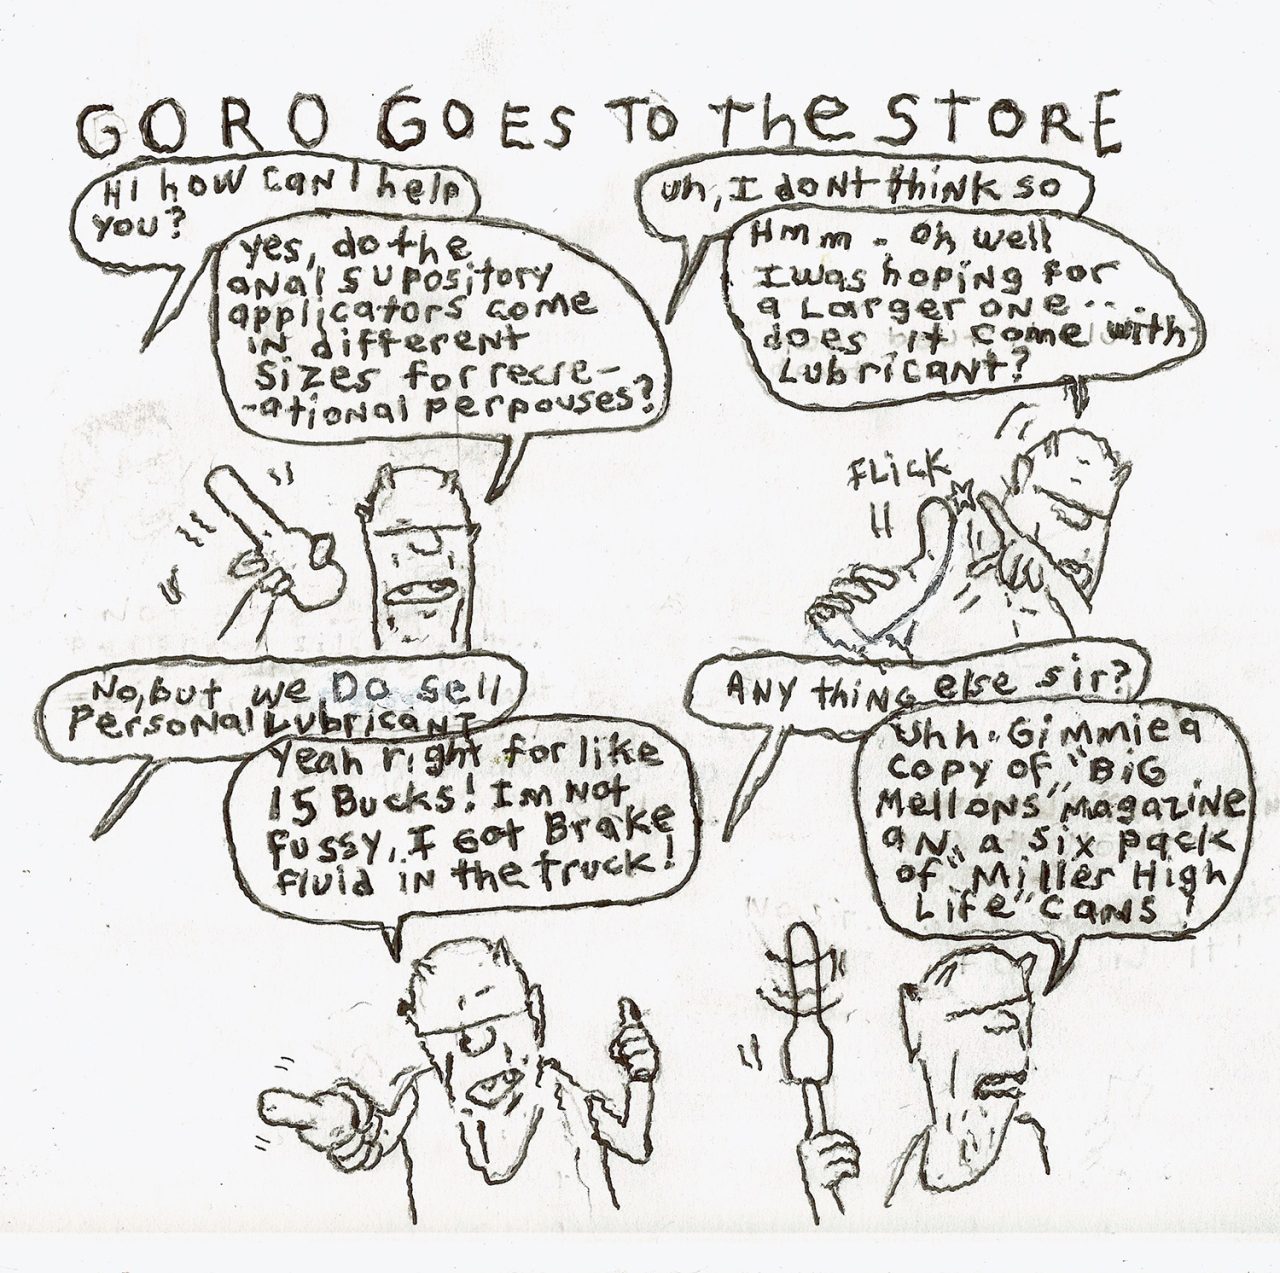 GORO GOES TO The STORE
HI how can I help
you?
yes, do the
anal supository
applicators come
in different
sizes for recre-
-ational perpouses?
uh, I dont think so
Hmm. Oh well
I was hoping for
a Larger one....
does it come with
Lubricant?
FLICK
No, but we DO sell
Personal Lubricant
Yeah right for like
15 Bucks! Im not
fussy, I got Brake
fluid in the truck!
Any thing else sir?
Uhh. Gimmie a
copy of "BiG
Mellons" magazine
an, a six pack
of "Miller High
Life" cans!